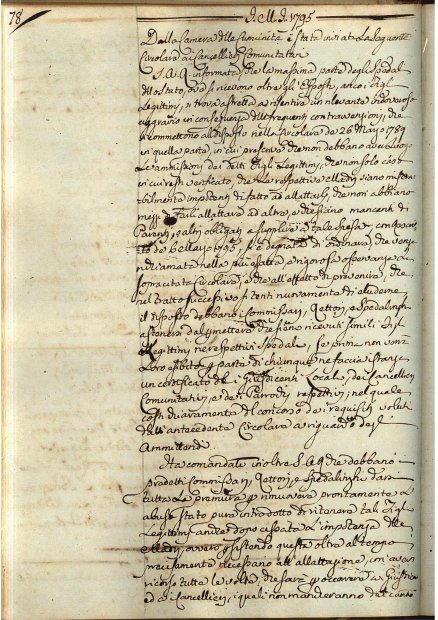 78
J. M. J. 1795
Dalla Camera delle Comunità è stata inviata la seguente
Circolare ai Cancellieri Comunitativi
S. A. R. informata, che la massima parte degli Spedali
dello stato, ove si ricevono oltre gli Esposti, anco i Figli
Legittimi, si trova astretta a risentire un rilevante
aggravio in conseguenza delle frequenti contravvenzioni, che
si commettono al disposto nella Circolare de 26 Marzo 1789
in quella parte, in cui prescrive che non debbano aver luogo
le ammissioni dei detti Figli Legittimi, che nel solo caso
in cui resti verificato, che le respettive Madri siano
impotenti di fatto ad allattarli, che non abbiano
mezzi di farli allattare ad altre, e che siano mancanti di
Parenti, o altri obbligati a supplire a tale spesa, con
de 1795, si è degnata di ordinare, che venga
richiamata nella più esatta, e rigorosa osservanza la
sopracitata Circolare, e che all'effetto di prevenire, che
nel tratto successivo si tenti nuovamente di eludere
il disposto debbano i Commissari, Rettori, e Spedalinghi
astenersi dal permettere che siano ricevuti simili Figli
Legittimi ne respettivi Spedali, se prima non venga
loro esibito per parte di chiunque ne faccia istanza
un certificato dei Giusdicenti Locali, dei Cancellieri
Comunitativi, e de Parrochi respettivi, nel quale
costi chiaramente del concorso dei requisiti voluti
dall'antecedente Circolare a riguardo degl'
Ammittendi.
Ha comandato inoltre S. A. R. che debbano i
predetti Commissari, Rettori, e Spedalinghi darsi
tutta la premura per rimuovere prontamente l'
abuso stato pure introdotto di ritenere tali Figli
Legittimi anche dopo cessata l'impotenza delle
Madri, ovvero persistendo questa oltre al tempo
precisamente necessario all'allattazione, con aver
ricorso tutte le volte, che sarà per occorrere ai Giusdicenti
ed ai Cancellieri, i quali non mancheranno dal canto